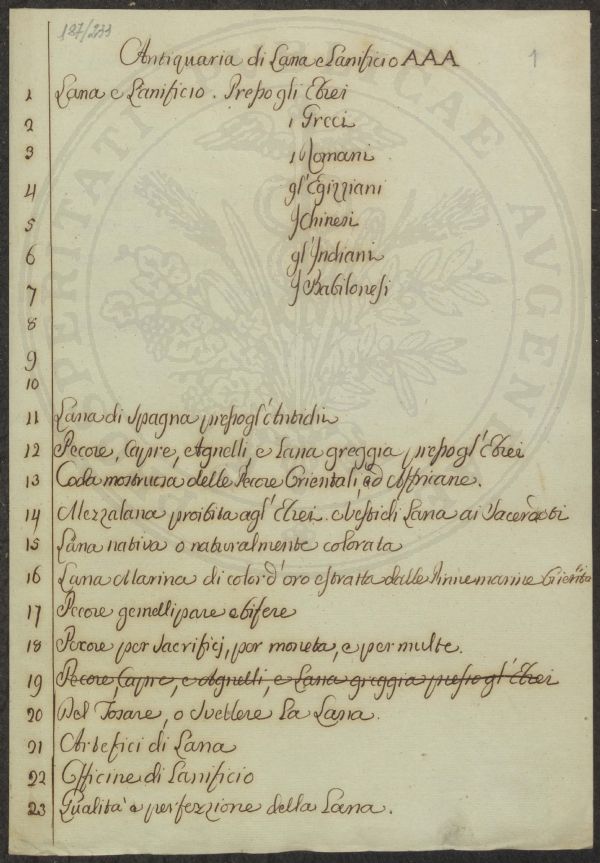 187/233
Antiquaria di Lana e Lanificio AAA
1
1 Lana e Lanificio. Presso gli Ebrei
2 i Greci
3 i Romani
4 gl'Egizziani
5 J Chinesi
6 gl'Jndiani
7 J Babilonesi
8
9
10
11 Lana di Spagna presso gl'Antichi
12 Pecore, Capre, Agnelli, e Lana greggia presso gl'Ebrei
13 Coda mostruosa delle Pecore Orientali, ed Affricane.
14 Mezzalana proibita agl'Ebrei e Vesti di Lana ai Sacerdoti
15 Lana nativa o naturalmente colorata
16 Lana Marina di color d'oro estratta dalle Pinne marine
17 Pecore gemellipare e bifere
18 Pecore per Sacrificj, per moneta, e per multe.
19 Pecore, Capre, e Agnelli, e Lana greggia presso gl'Ebrei
20 Del Tosare, o Svellere La Lana.
21 Artefici di Lana
22 Officine di Lanificio
23 Qualità e perfezzione della Lana.
PROSPERITATI PUBLICAE AUGENDAE